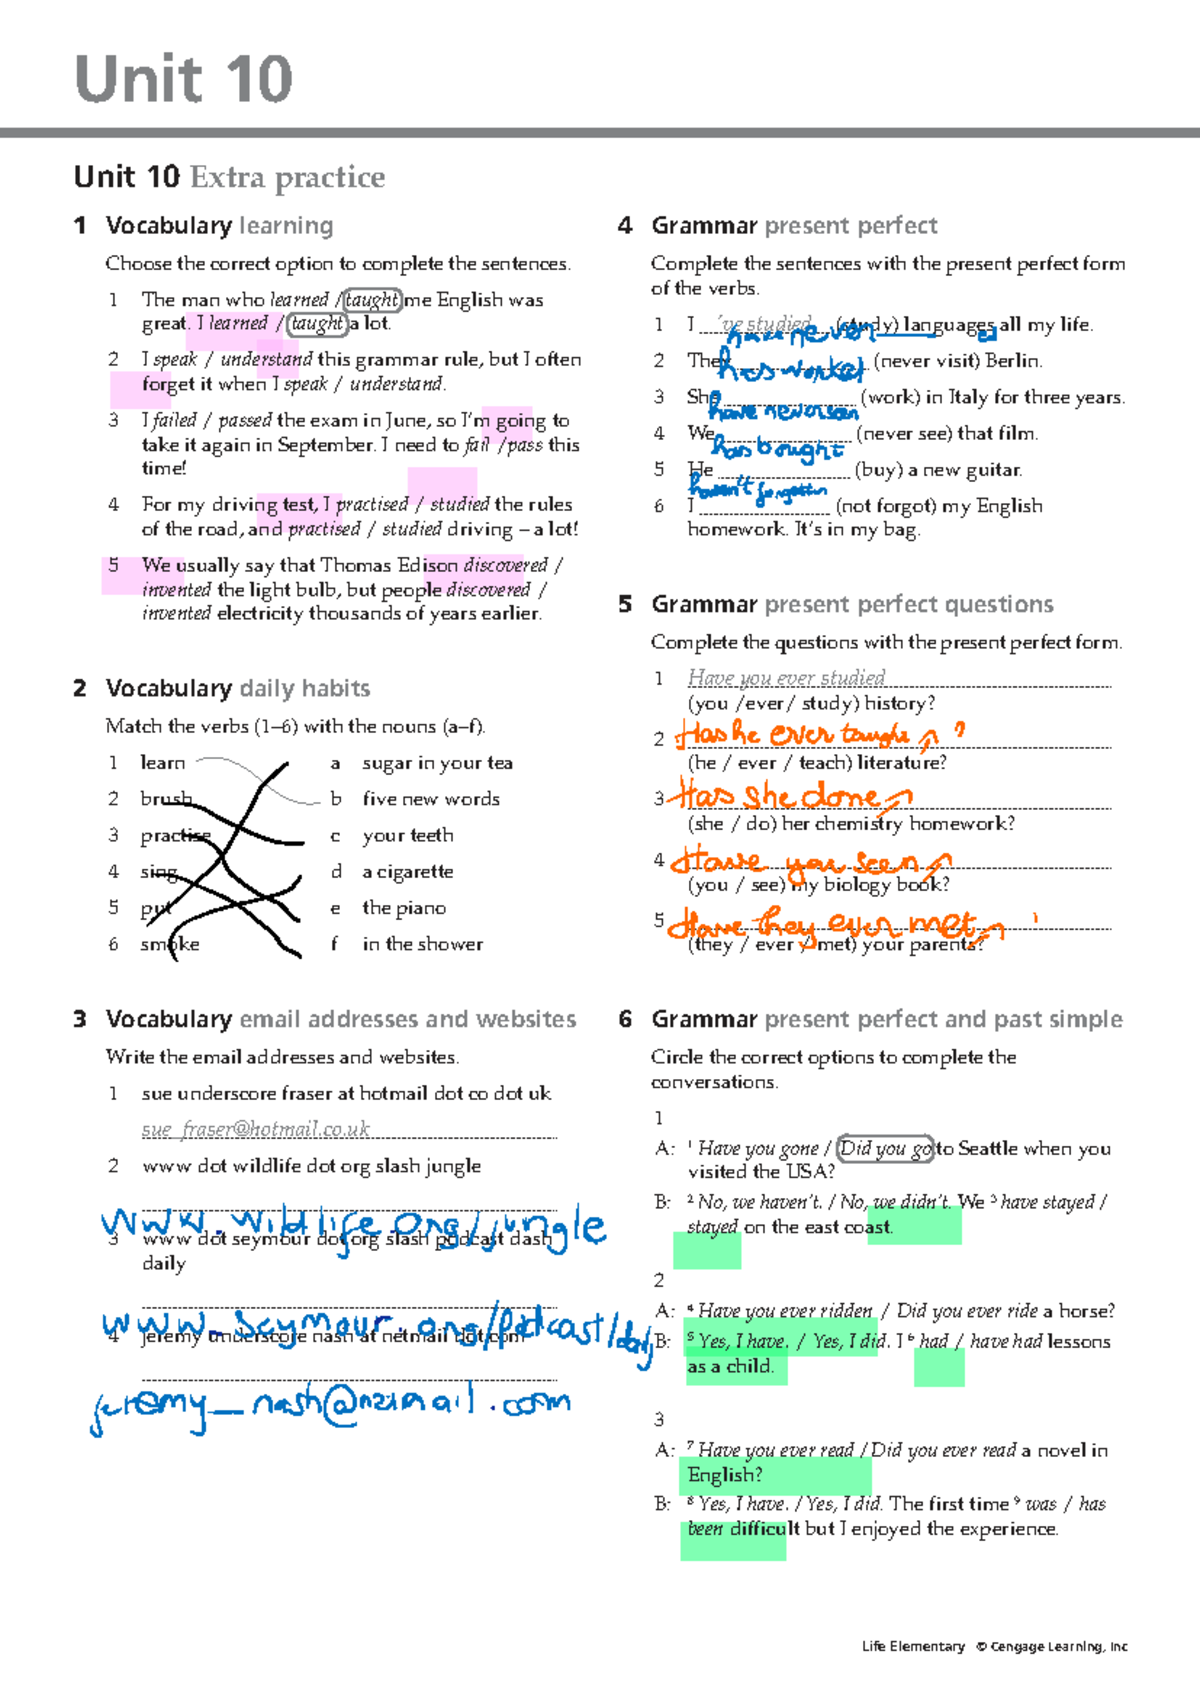 Unit 10
Unit 10 Extra practice
1 Vocabulary learning
Choose the correct option to complete the sentences.
1 The man who learned / taught me English was
great. I learned / taught a lot.
2 I speak / understand this grammar rule, but I often
forget it when I speak / understand.
3 I failed / passed the exam in June, so I'm going to
take it again in September. I need to fail / pass this
time!
4 For my driving test, I practised / studied the rules
of the road, and practised / studied driving – a lot!
5 We usually say that Thomas Edison discovered /
invented the light bulb, but people discovered /
invented electricity thousands of years earlier.
2 Vocabulary daily habits
Match the verbs (1–6) with the nouns (a–f).
1 learn a sugar in your tea
2 brush b five new words
3 practise c your teeth
4 sing d a cigarette
5 put e the piano
6 smoke f in the shower
3 Vocabulary email addresses and websites
Write the email addresses and websites.
1 sue underscore fraser at hotmail dot co dot uk
sue_fraser@hotmail.co.uk
2 www dot wildlife dot org slash jungle
www.wildlife.org/jungle
3 www dot seymour dot org slash podcast dash
daily
www.seymour.org/podcast/daily
4 jeremy underscore nash at netmail dot com
jeremy_nash@netmail.com
4 Grammar present perfect
Complete the sentences with the present perfect form
of the verbs.
1 I 've studied (study) languages all my life.
have never ed
2 They (never visit) Berlin.
has worked
3 She (work) in Italy for three years.
have never seen
4 We (never see) that film.
has bought
5 He (buy) a new guitar.
haven't forgotten
6 I (not forgot) my English
homework. It's in my bag.
5 Grammar present perfect questions
Complete the questions with the present perfect form.
1 Have you ever studied
(you /ever/ study) history?
2 Has he ever taught ?
(he / ever / teach) literature?
3 Has she done
(she / do) her chemistry homework?
4 Have you seen
(you / see) my biology book?
5 Have they ever met
(they / ever / met) your parents?
6 Grammar present perfect and past simple
Circle the correct options to complete the
conversations.
1
A: 1 Have you gone / Did you go to Seattle when you
visited the USA?
B: 2 No, we haven't. / No, we didn't. We 3 have stayed /
stayed on the east coast.
2
A: 4 Have you ever ridden / Did you ever ride a horse?
B: 5 Yes, I have. / Yes, I did. I 6 had / have had lessons
as a child.
3
A: 7 Have you ever read / Did you ever read a novel in
English?
B: 8 Yes, I have. / Yes, I did. The first time 9 was / has
been difficult but I enjoyed the experience.
Life Elementary © Cengage Learning, Inc